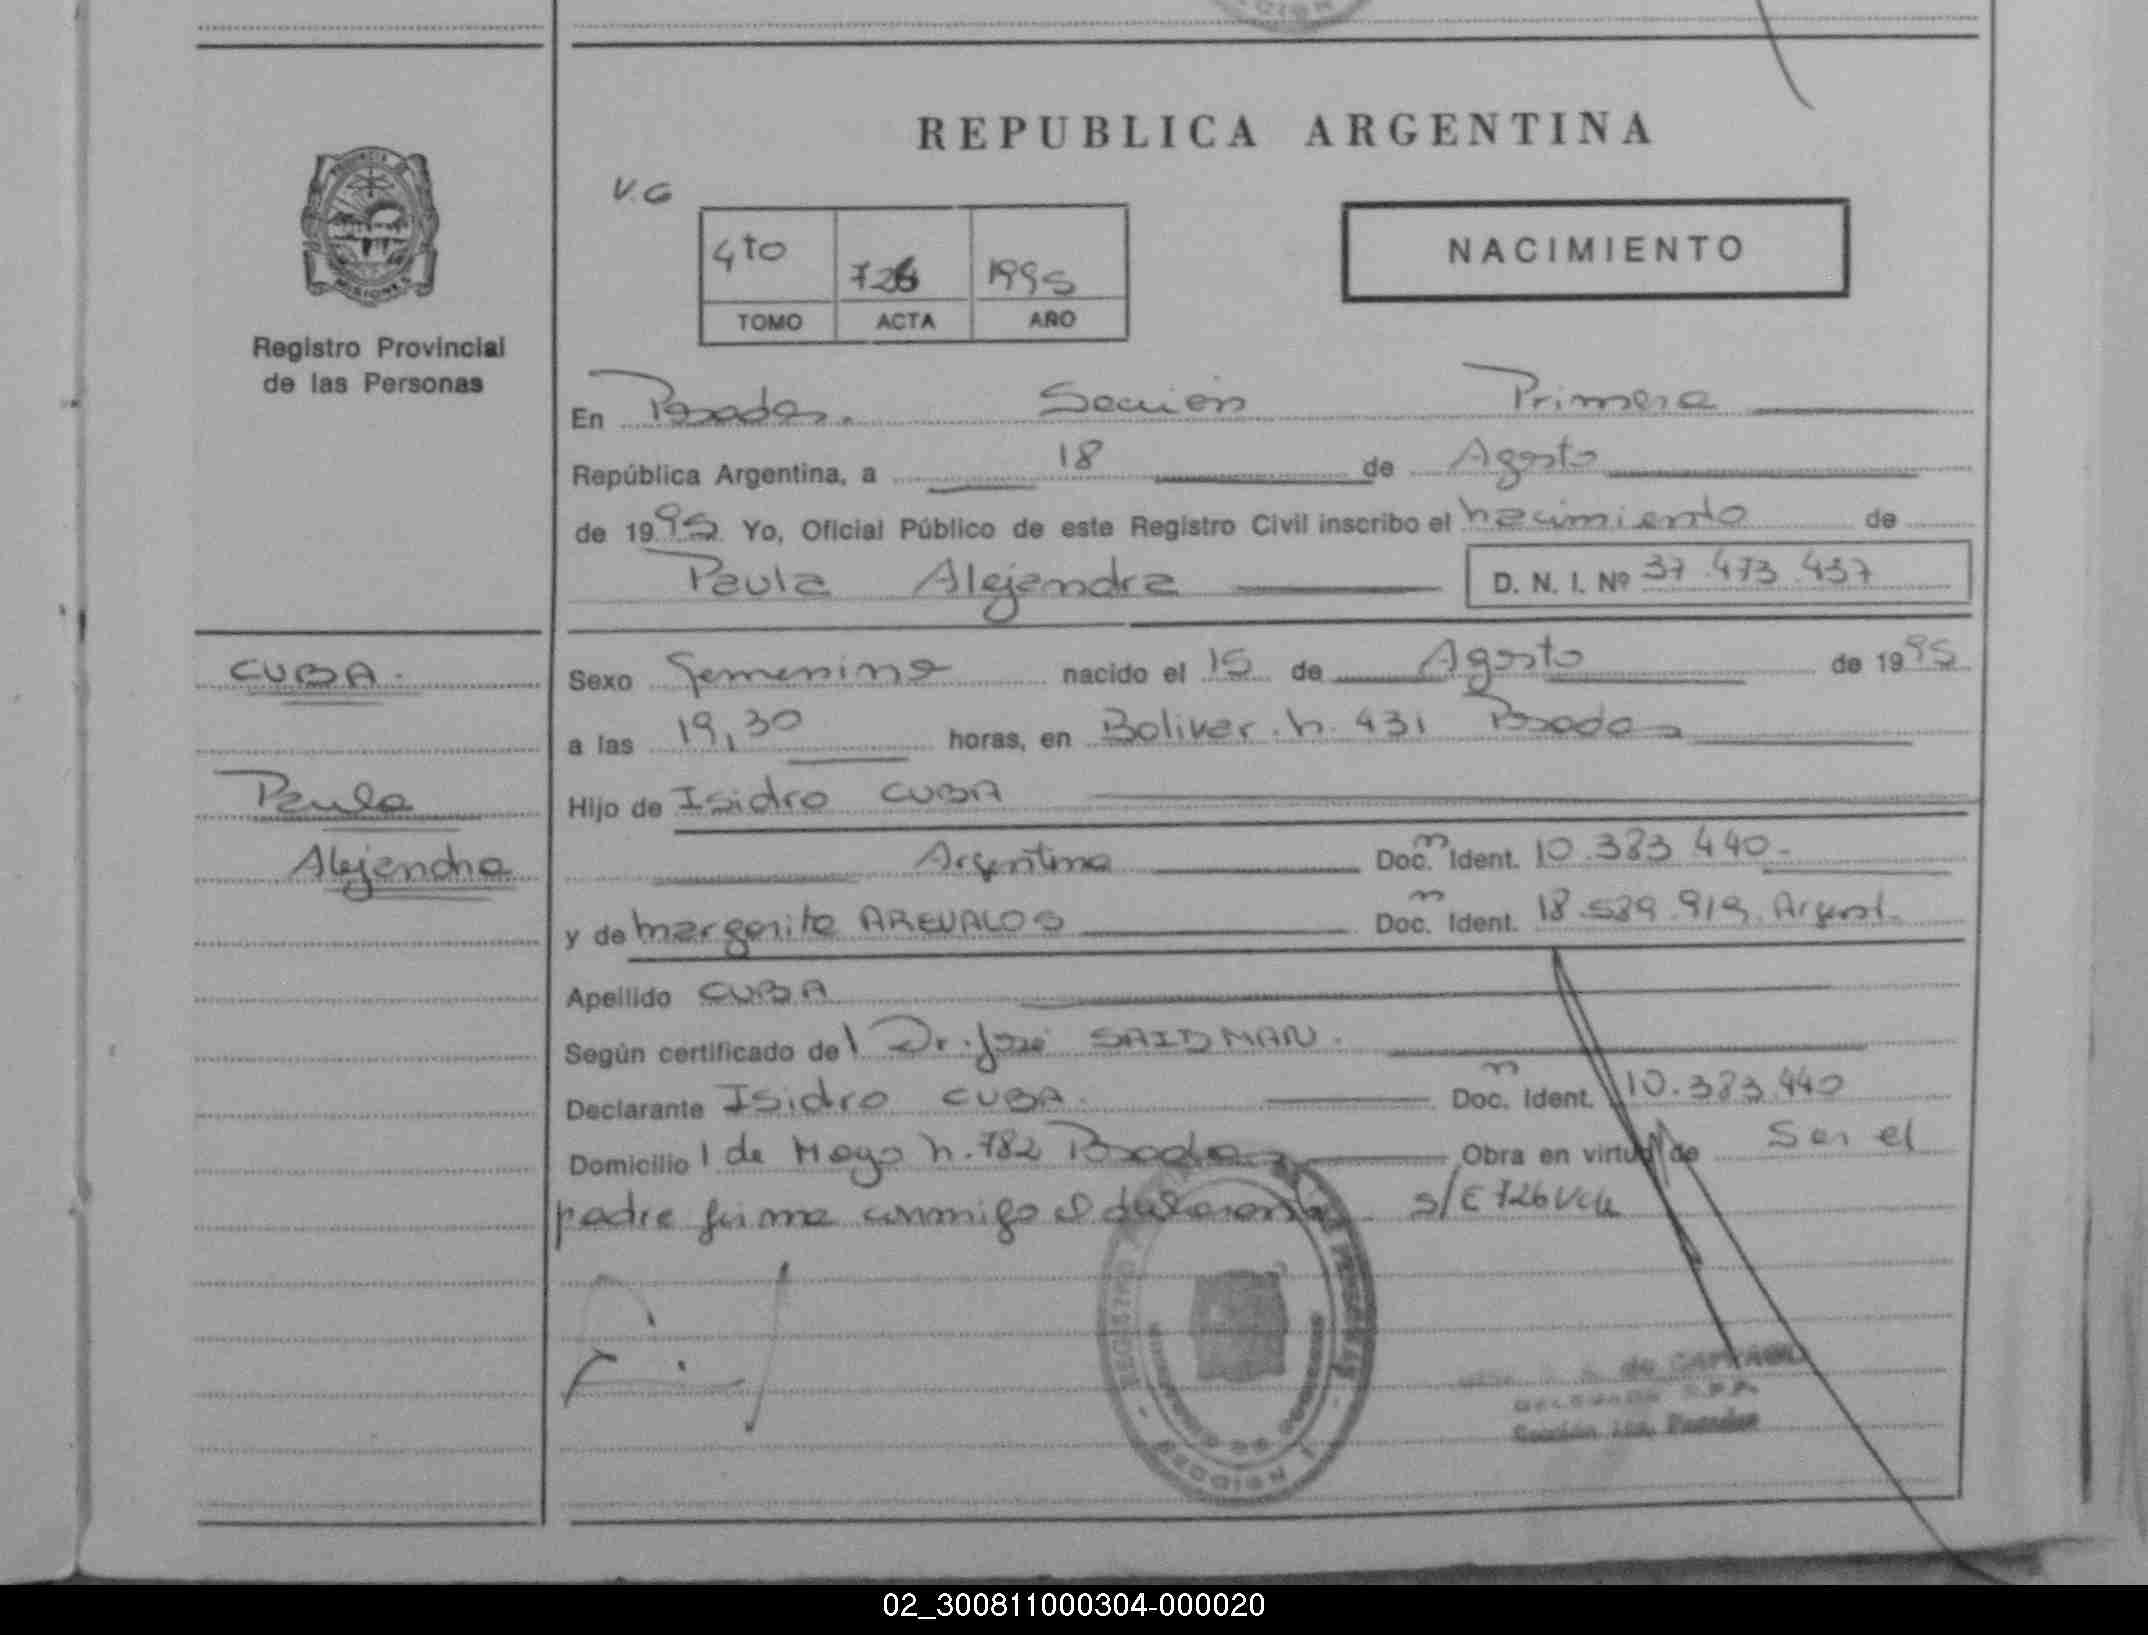 REPUBLICA ARGENTINA
V.G
NACIMIENTO
4to 726 1995
TOMO ACTA AÑO
PROVINCIA DE
MISIONES
Registro Provincial
de las Personas
En Posadas. Sección Primera
República Argentina, a 18 de Agosto
de 1995 Yo, Oficial Público de este Registro Civil inscribo el nacimiento de
Paula Alejandra D. N. I. Nº 37.473.437
CUBA.
Paula
Alejandra
Sexo femenino nacido el 15 de Agosto de 1995
a las 19,30 horas, en Bolivar. n. 431 Posadas
Hijo de Isidro CUBA
Argentina Doc. m Ident. 10.383.440.
y de Margarita AREVALOS Doc. m Ident. 18.539.919. Argent.
Apellido CUBA
Según certificado del Dr. José SAIDMAN.
Declarante Isidro CUBA. Doc. m Ident. 10.383.440
Domicilio 1 de Mayo n. 782 Posadas Obra en virtud de Ser el
padre firma conmigo el declarante s/E 726 Vale
REGISTRO PERSONAS
SECCION 1
de
Sección 1ra. Posadas
02_300811000304-000020